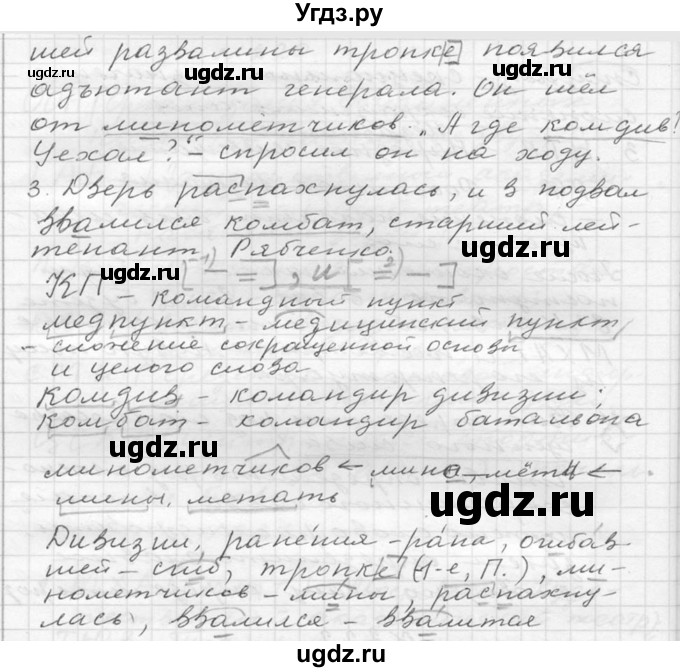 Угдз.ру
шей развалины тропке появился
адъютант генерала. Он шёл
от минометчиков. „А где комдив?
Уехал?“ – спросил он на ходу.
3. Дверь распахнулась, и в подвал
ввалился комбат, старший лей-
тенант Рябченко.
[ – = ], и [ = – ]
КП – командный пункт
медпункт – медицинский пункт
– сложение сокращенной основы
и целого слова
комдив – командир дивизии;
комбат – командир батальона
минометчиков ← миномётч ←
мины, метать
Дивизии, ранения – рана, огибав
шей – сгиб, тропке (1-е, П.), ми-
нометчиков – мины, распахну-
лась, ввалился – ввалится
ugdz.ru
ugdz.ru
ugdz.ru
ugdz.ru
ugdz.ru
ugdz.ru
ugdz.ru
ugdz.ru
ugdz.ru
ugdz.ru